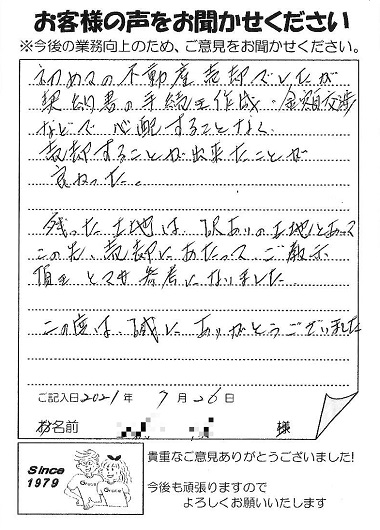 お客様の声をお聞かせください
※今後の業務向上のため、ご意見をお聞かせください。
初めての不動産売却でしたが
契約書の手続き作成・金額交渉
などで心配することなく
売却することが出来たことが
良かった。
残った土地は、訳ありの土地とあって
この先、売却にあたって ご教示
頂き とても 参考になりました
この度は、誠に ありがとうございました
ご記入日2021年 7月26日
お名前 様
Since
1979
貴重なご意見ありがとうございました!
今後も頑張りますので
よろしくお願いいたします